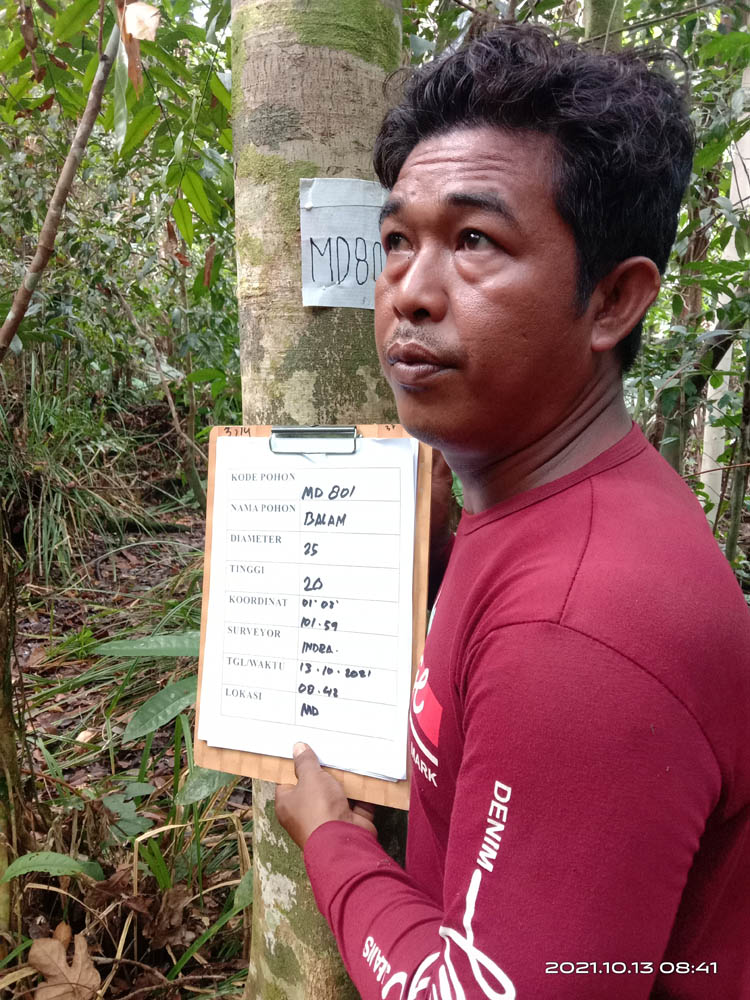 MD80
3,14
KODE POHON MD 801
NAMA POHON BALAM
DIAMETER 25
TINGGI 20
KOORDINAT 01°03'
101.59
SURVEYOR INDRA.
TGL/WAKTU 13.10.2021
08.42
LOKASI MD
MARK
DENIM
JEANS
2021.10.13 08:41